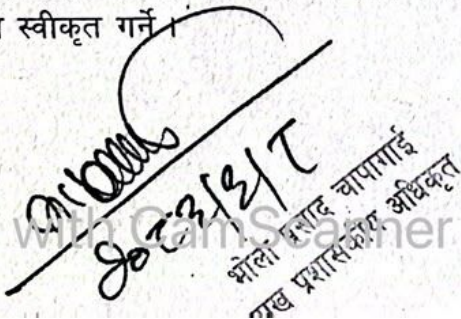 स्वीकृत गर्ने ।
with CamScanner
भोला प्रसाद चापागाई
प्रशासकीय अधिकृत